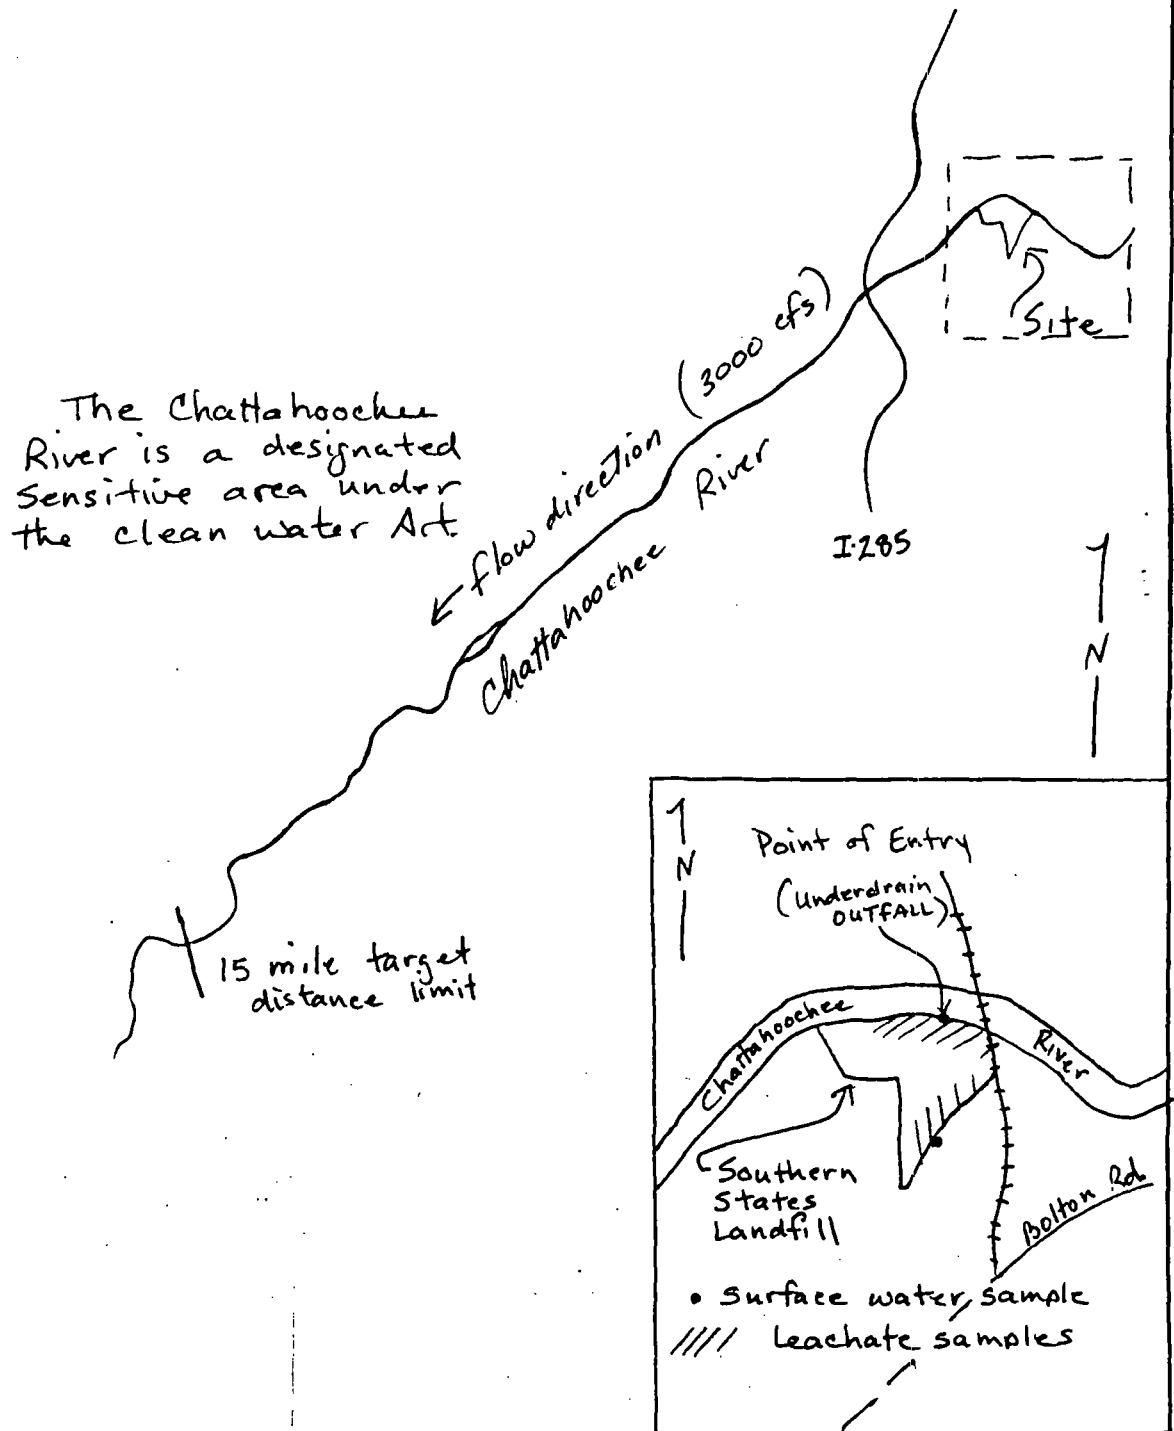 Site
(3000 cfs)
The Chattahoochee
River is a designated
Sensitive area under
the clean water Act.
← flow direction
Chattahoochee River
I-285
N
15 mile target
distance limit
N
Point of Entry
(Underdrain
OUTFALL)
Chattahoochee River
Southern
States
Landfill
Bolton Rd.
• Surface water sample
//// Leachate samples